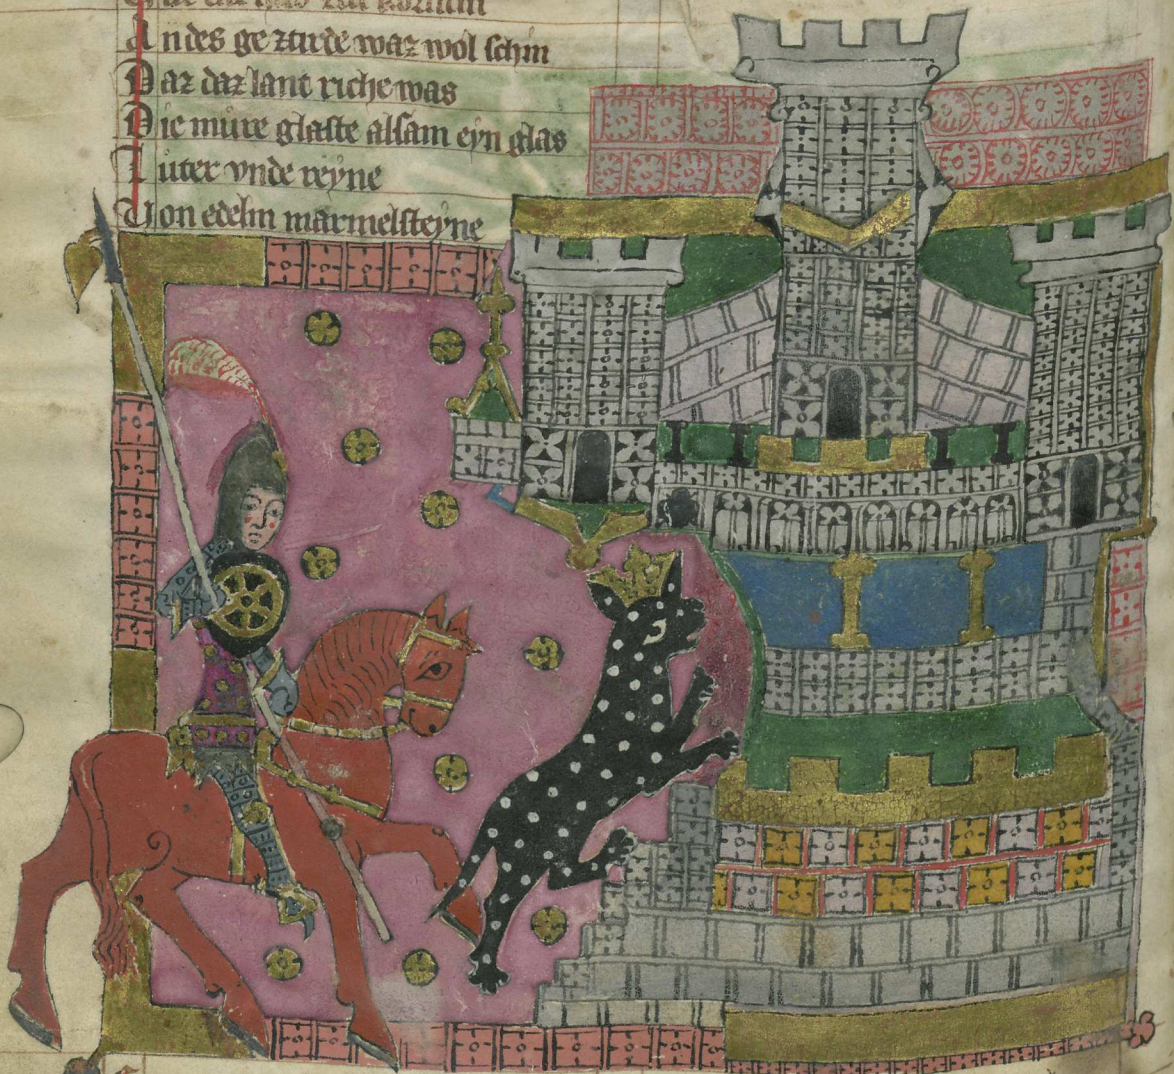 An des gezirde waz wol schin
Daz daz lant riche was
Die mure glaste alsam eyn glas
Luter vnde reyne
Von edelm marmelsteyne